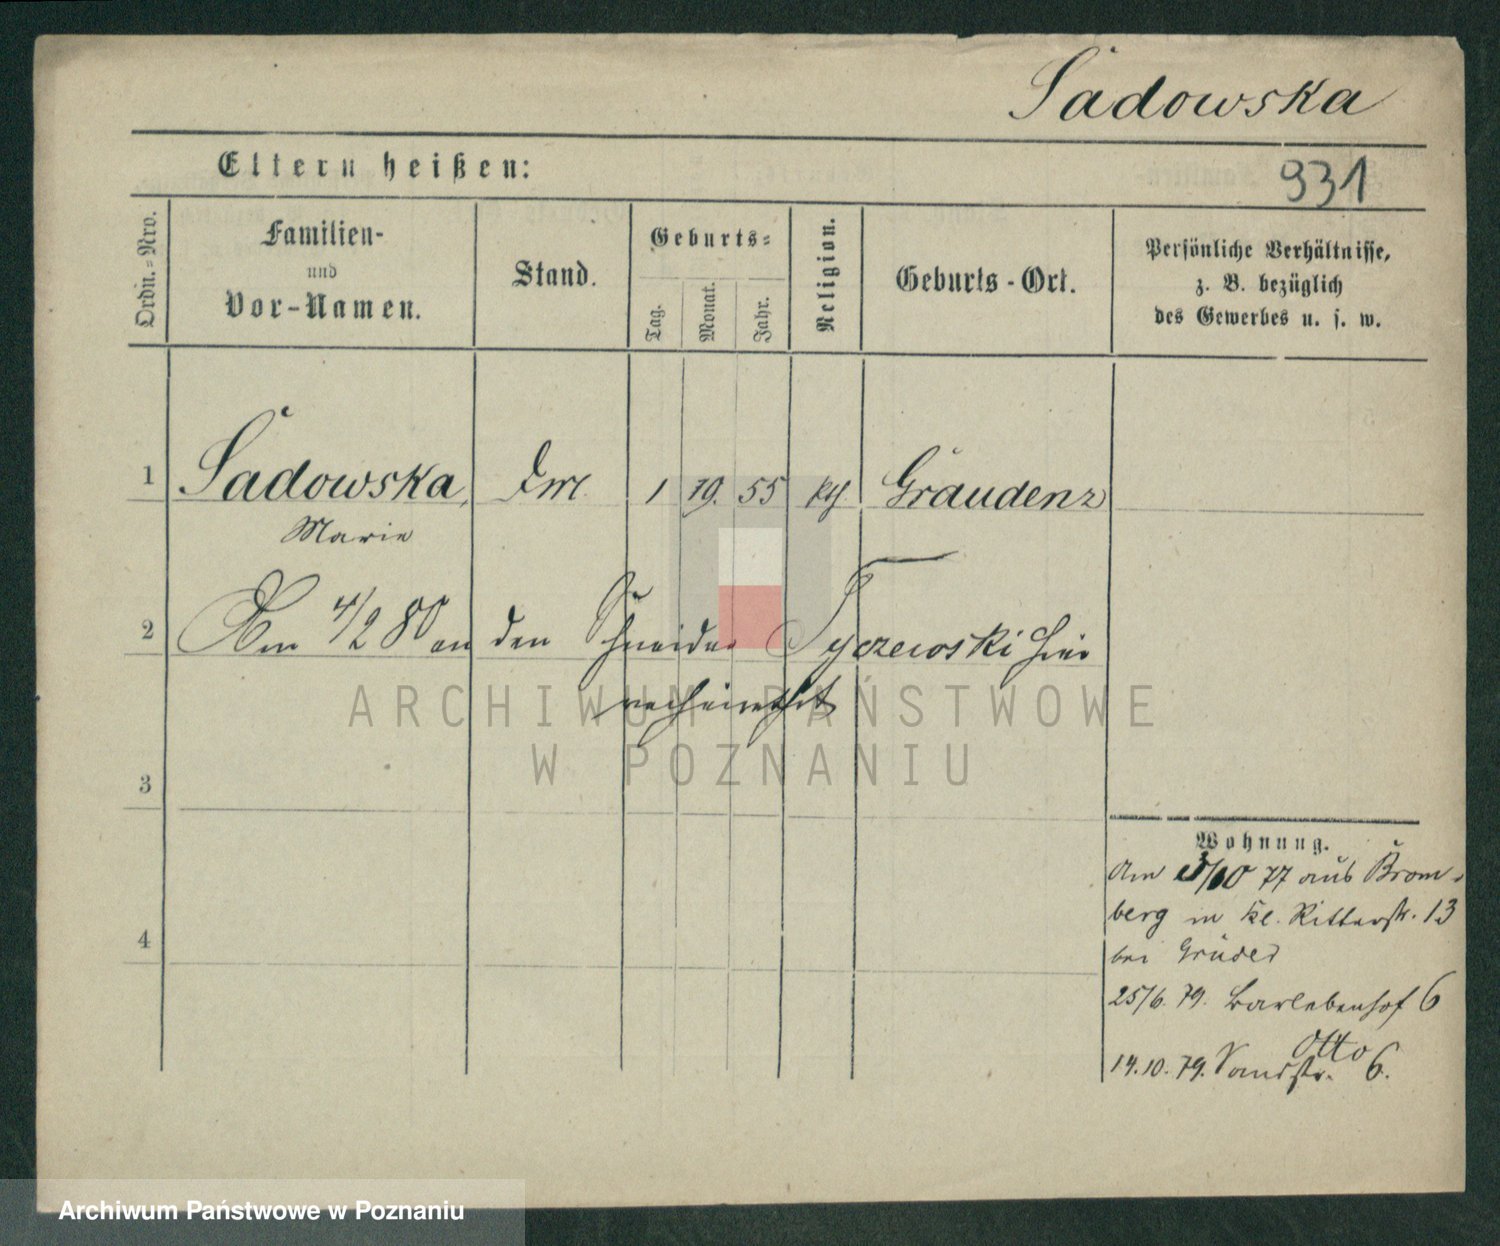 Sadowska
Eltern heißen:
931
Ordn.-Nro.
Familien-
und
Vor-Namen.
Stand.
Geburts-
Tag.
Monat.
Jahr.
Religion.
Geburts-Ort.
Persönliche Verhältnisse,
z. B. bezüglich
des Gewerbes u. s. w.
1 Sadowska, 1 19. 55 kth Graudenz
Marie
2 Am 4/2 80 an den Schneider Tyczewski hier
verheirathet
3
4
Wohnung.
Am 3/10 77 aus Brom-
berg in Kl. Ritterstr. 13
bei Grüder
25/6. 79. Barlebenshof 6
Otto
14.10.79. Sandstr. 6.
ARCHIWUM PAŃSTWOWE
W POZNANIU
Archiwum Państwowe w Poznaniu